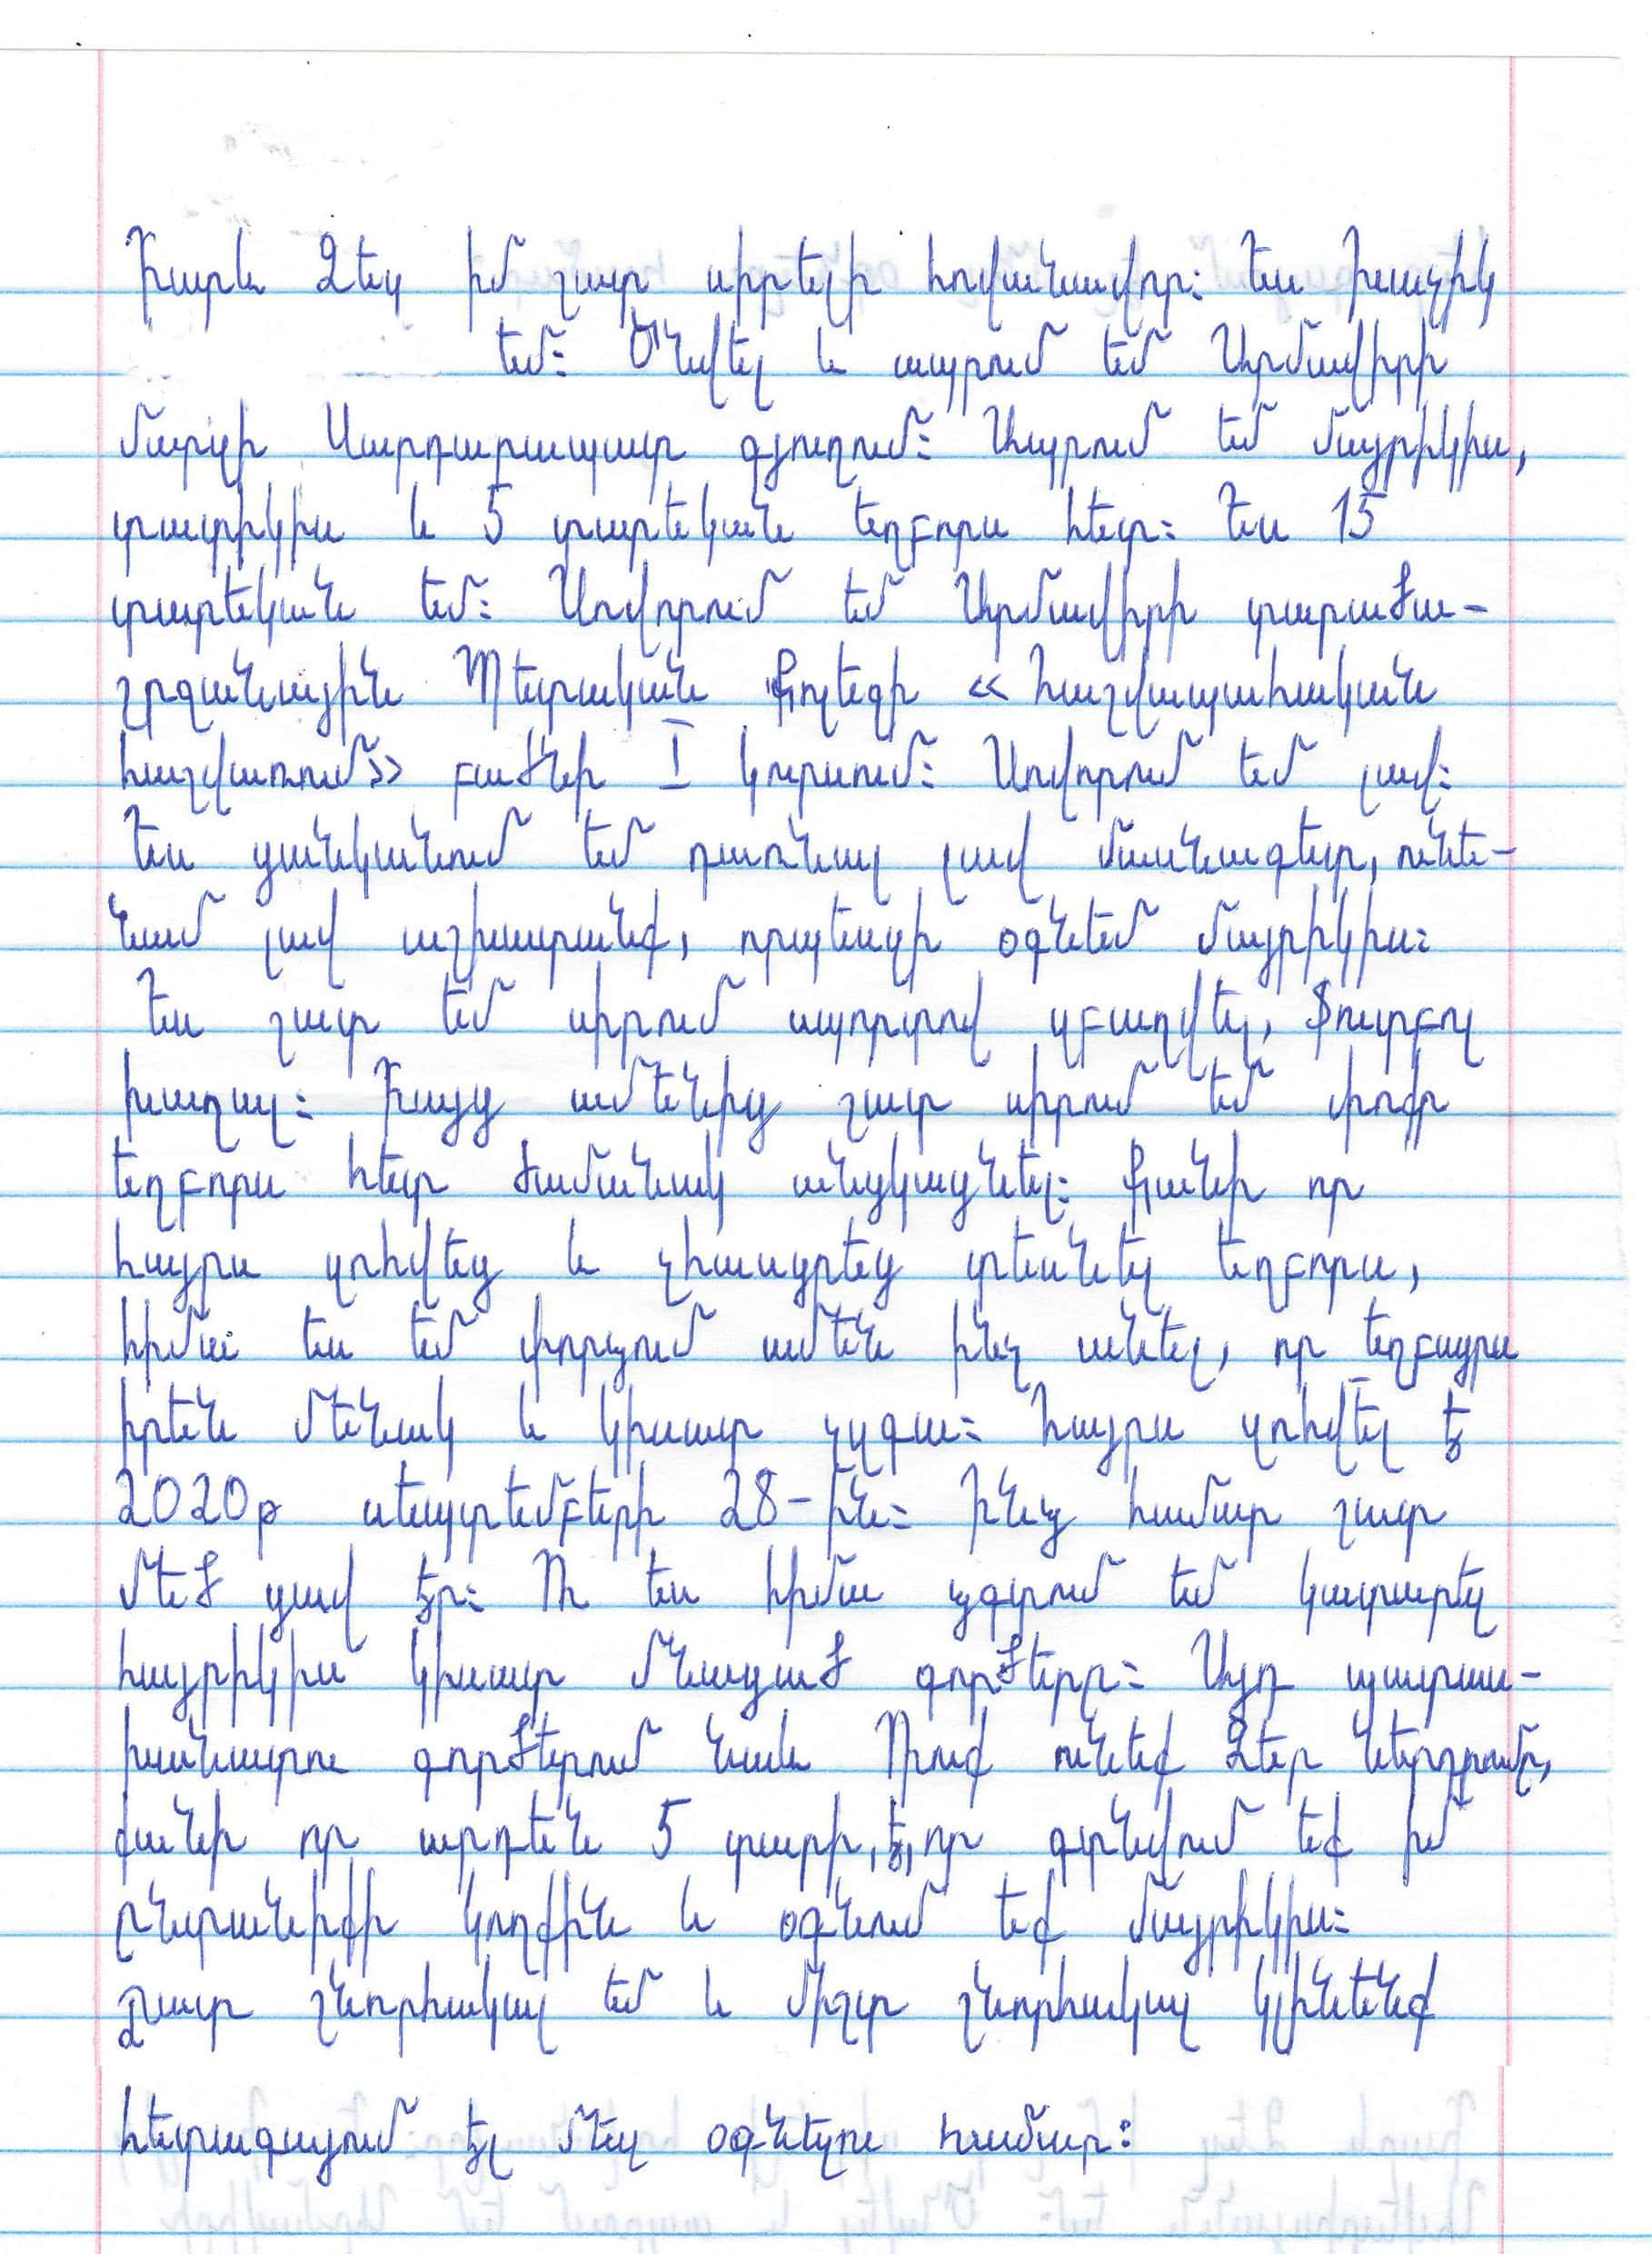 Բարև Ձեզ իմ շատ սիրելի հովանավոր: Ես Խաչիկ
եմ: Ծնվել և ապրում եմ Արմավիրի
մարզի Սարդարապատ գյուղում: Ապրում եմ մայրիկիս,
տատիկիս և 5 տարեկան եղբորս հետ: Ես 15
տարեկան եմ: Սովորում եմ Արմավիրի տարածա-
շրջանային Պետական Քոլեջի «Հաշվապահական
հաշվառում» բաժնի I կուրսում: Սովորում եմ լավ:
Ես ցանկանում եմ դառնալ լավ մասնագետ, ունե-
նամ լավ աշխատանք, որպեսզի օգնեմ մայրիկիս:
Ես շատ եմ սիրում սպորտով զբաղվել, ֆուտբոլ
խաղալ: Բայց ամենից շատ սիրում եմ փոքր
եղբորս հետ ժամանակ անցկացնել: Քանի որ
հայրս զոհվեց և չհասցրեց տեսնել եղբորս,
հիմա ես եմ փորձում ամեն ինչ անել, որ եղբայրս
իրեն մենակ և կիսատ չզգա: Հայրս զոհվել է
2020թ սեպտեմբերի 28-ին: Ինձ համար շատ
մեծ ցավ էր: Ու ես հիմա ձգտում եմ կատարել
հայրիկիս կիսատ մնացած գործերը: Այդ պատաս-
խանատու գործերում նաև Դուք ունեք Ձեր ներդրումը,
քանի որ արդեն 5 տարի, է, որ գտնվում եք իմ
ընտանիքի կողքին և օգնում եք մայրիկիս:
Շատ շնորհակալ եմ և միշտ շնորհակալ կլինենք
հետագայում էլ մեզ օգնելու համար: